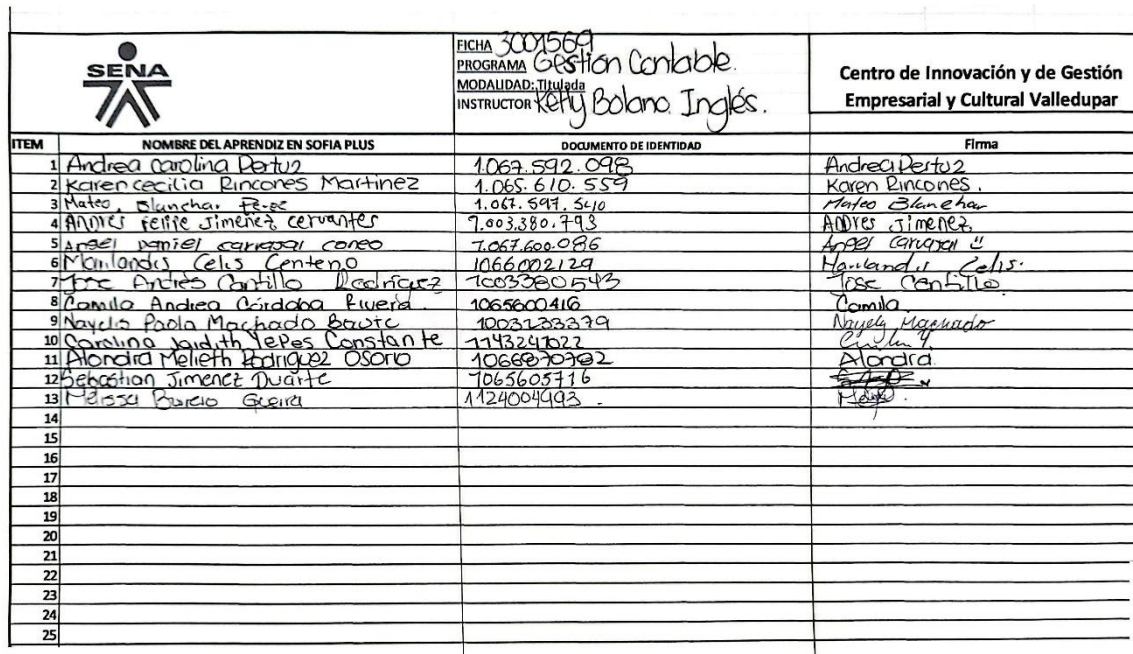 SENA
FICHA 3001569
PROGRAMA Gestión Contable.
MODALIDAD: Titulada
INSTRUCTOR Ketty Bolano. Inglés.
Centro de Innovación y de Gestión
Empresarial y Cultural Valledupar
ITEM NOMBRE DEL APRENDIZ EN SOFIA PLUS DOCUMENTO DE IDENTIDAD Firma
1 Andrea Carolina Pertuz 1.067.592.098 Andrea Pertuz
2 Karen cecilia Rincones Martinez 1.065.610.559 Karen Rincones.
3 Mateo. Blanchar 1.067.597.540 Mateo Blanchar
4 Andres Felipe Jimenez Cervantes 1.003.380.793 Andres Jimenez
5 Angel Daniel carvajal coneo 1.067.600.086 Angel carvajal
6 Marilandis Celis Centeno 1066002129 Marilandis Celis.
7 Jose Andres Cantillo Rodriguez 1003380543 Jose Cantillo
8 Camila Andrea Córdoba Rivera. 1065600416 Camila.
9 Nayelis Paola Machado Baute 1003233379 Nayely Machado
10 Carolina Judith Yepes Constante 1143241022
11 Alondra Melieth Rodriguez Osorio 1066870702 Alondra.
12 Sebastian Jimenez Duarte 1065605716
13 Melissa Guerra 1124004993.
14
15
16
17
18
19
20
21
22
23
24
25